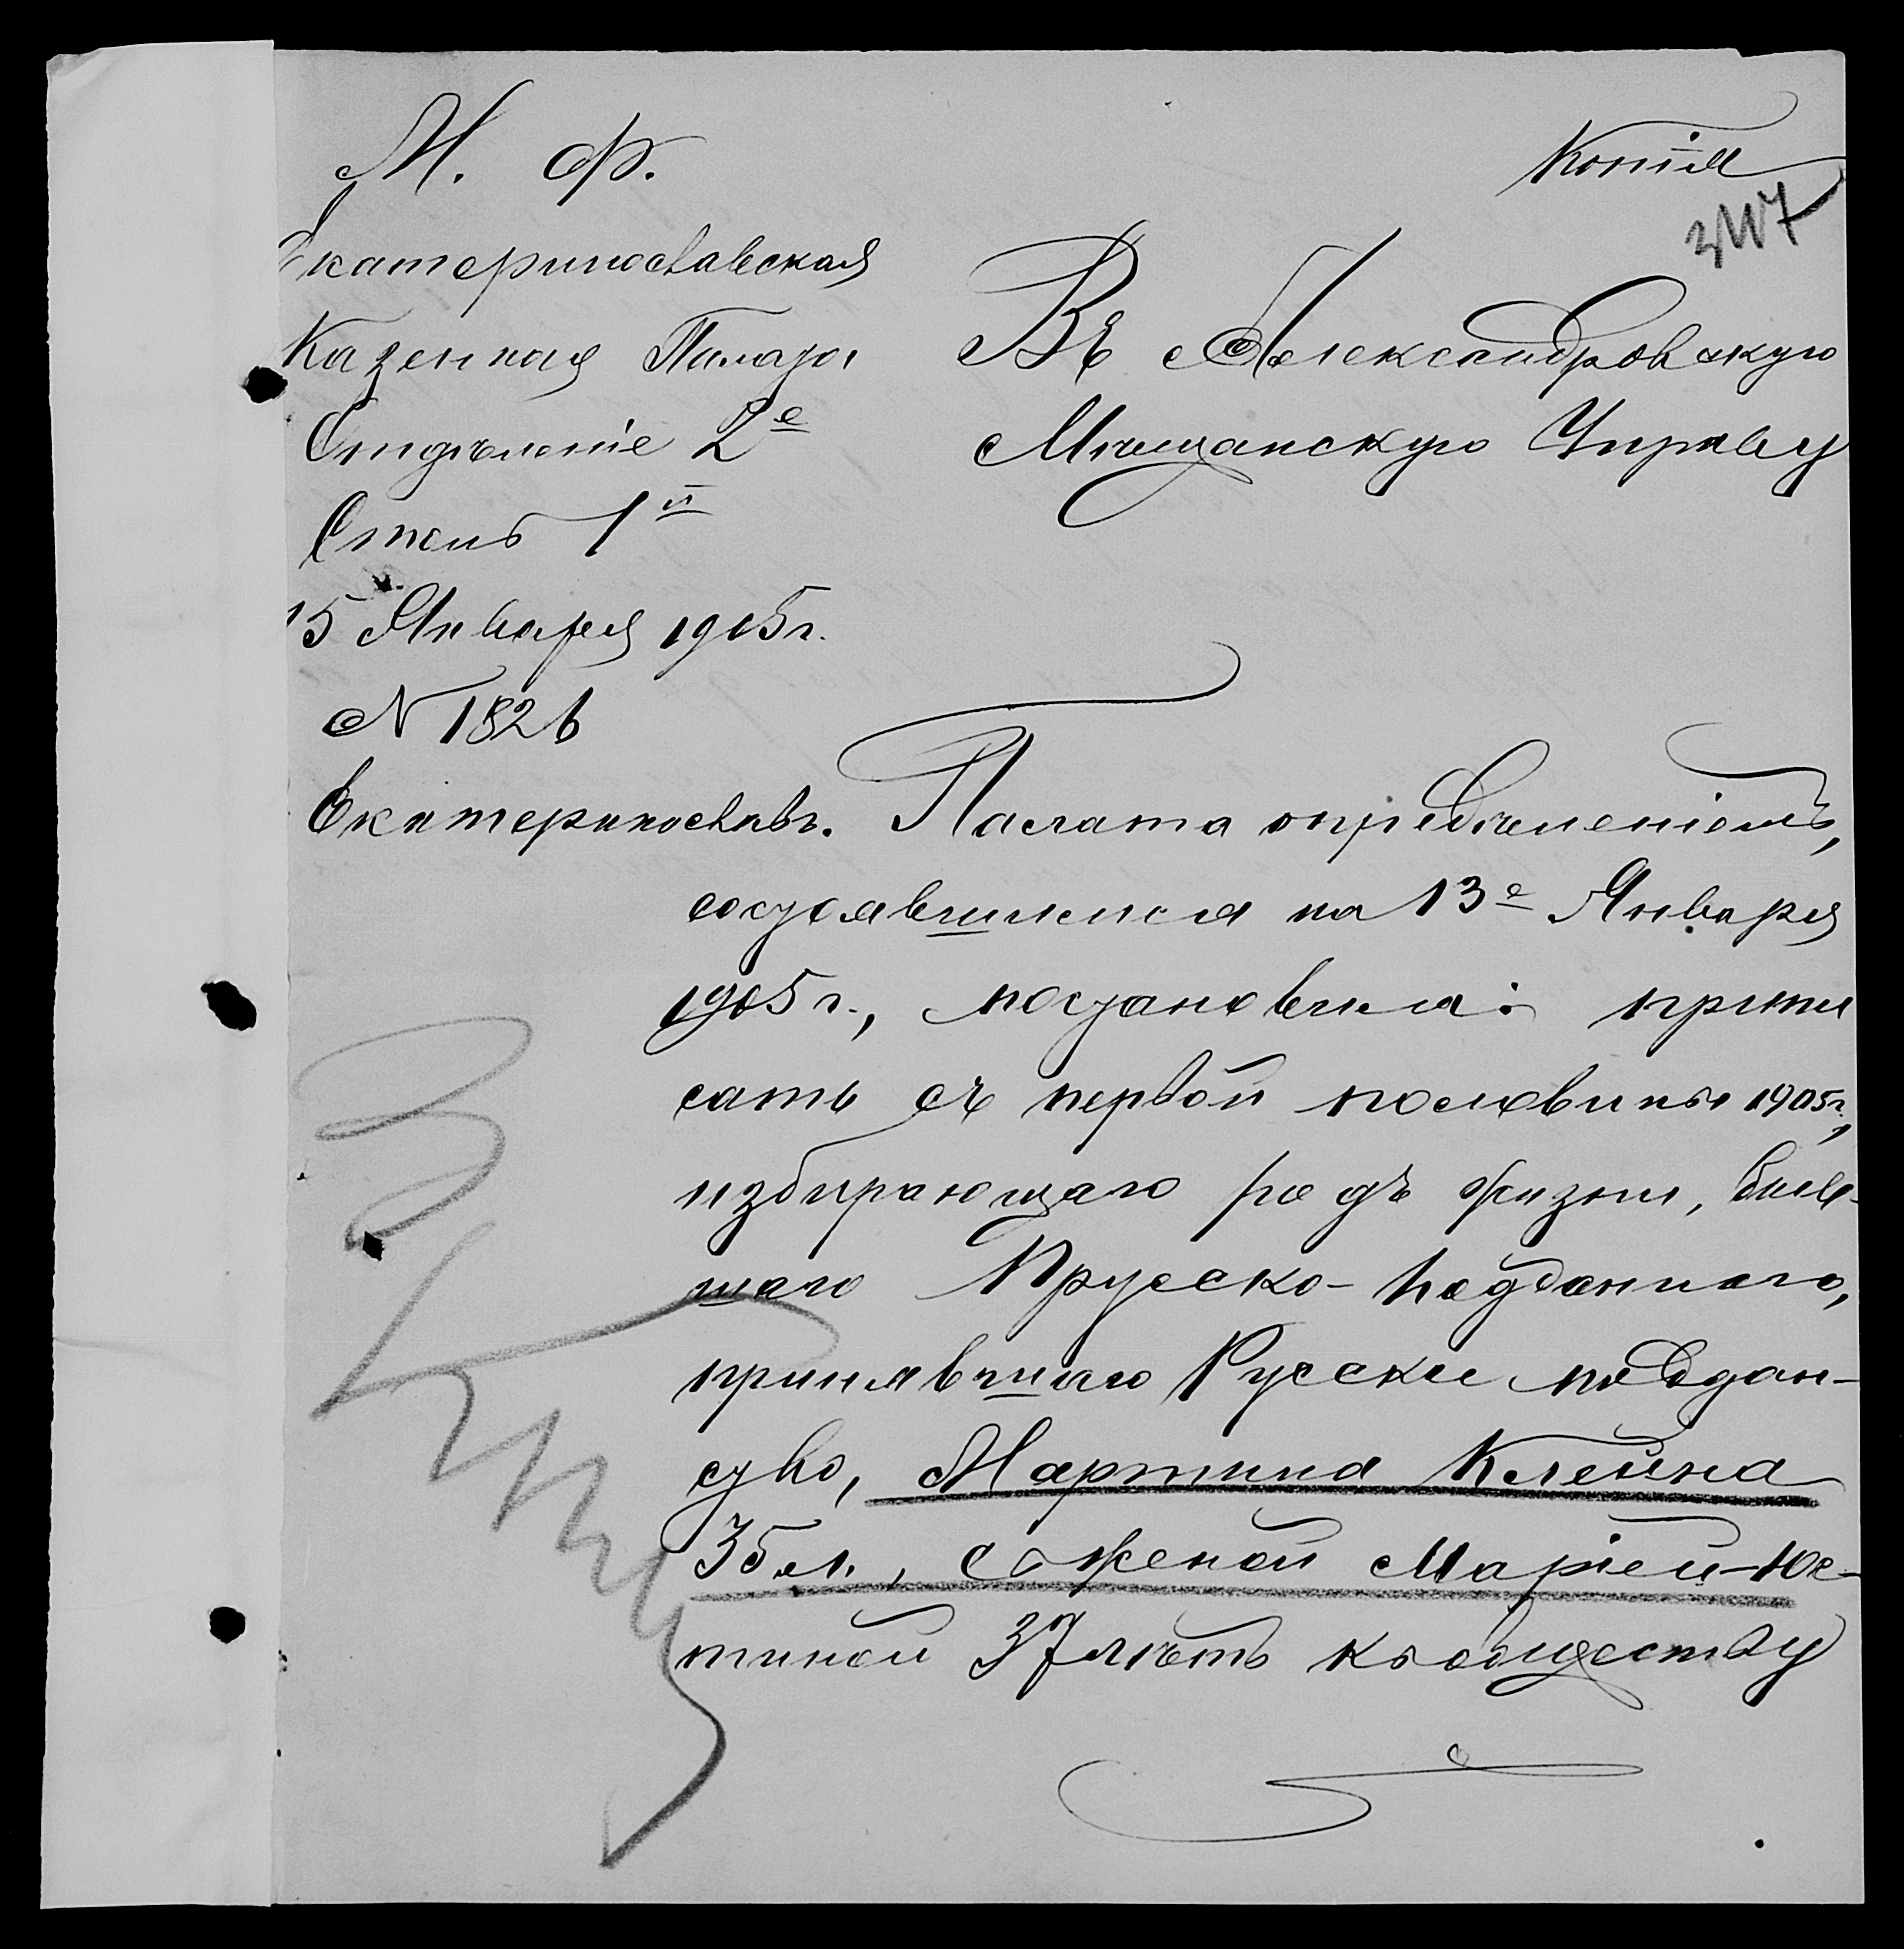 М. Ф.
Копія
Екатеринославская
Казенная Палата
Отдѣленіе 2е
Столъ 1й
15 Января 1905 г.
N 1826
Екатеринославъ.
Въ Александровскую
Мѣщанскую Управу
Палата опредѣленіемъ,
состоявшимся на 13е Января
1905 г., постановила: припи
сать съ первой половины 1905 г.,
избирающаго родъ жизни, быв-
шаго Прусско-подданнаго,
принявшаго Русское поддан-
ство, Мартина Клейна
35 л., съ женой Маріей-Юс-
тиной 37 лѣтъ къ обществу